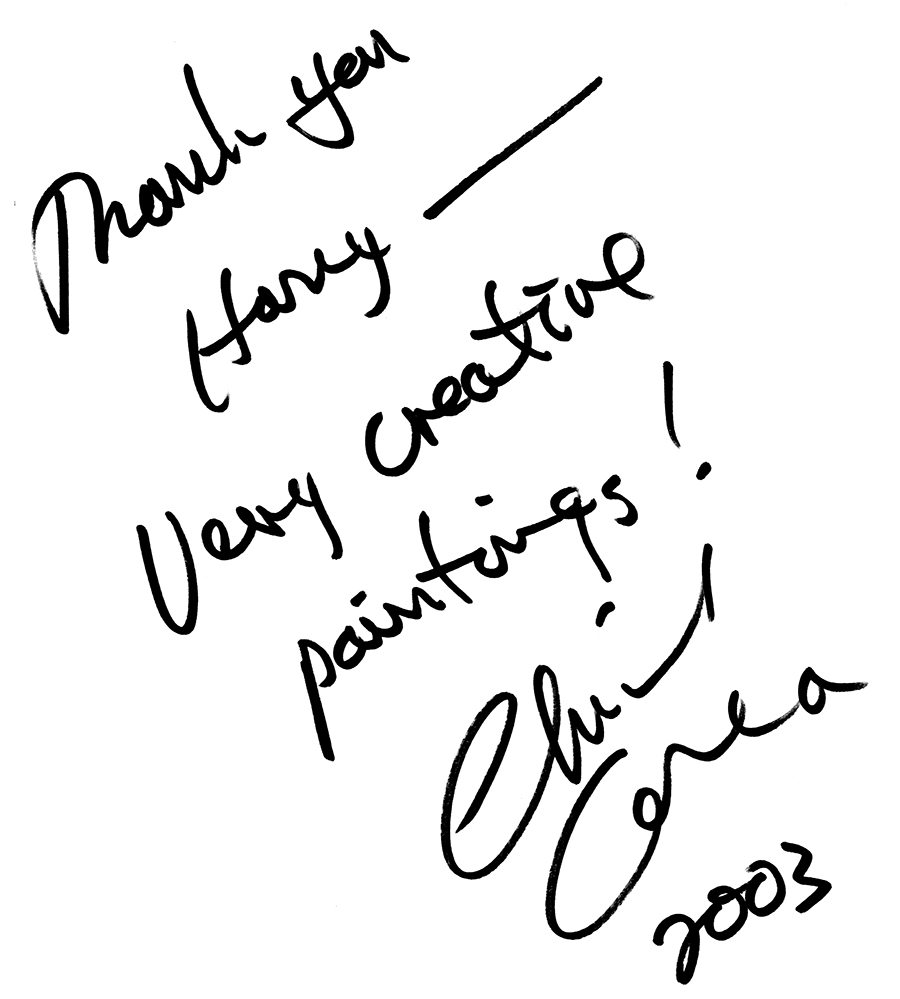 Thank you
Harry —
Very creative
paintings!
Chick
Corea
2003